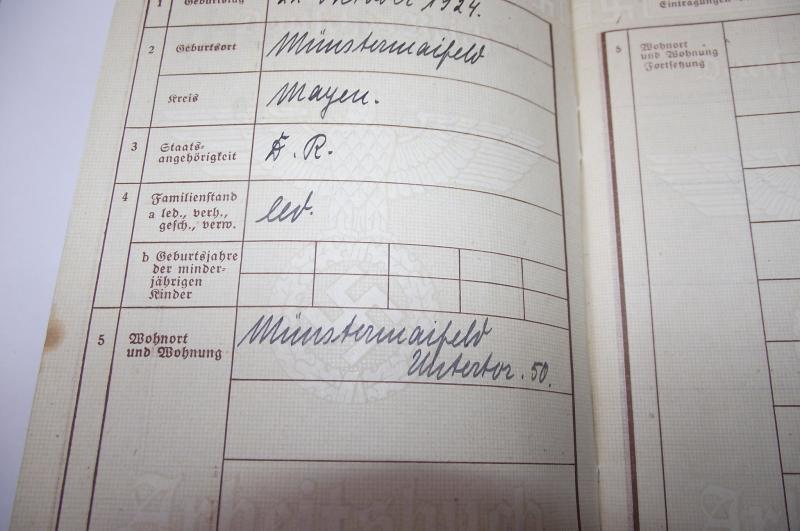 1 Geburtstag
Oktober 1924.
2 Geburtsort Münstermaifeld
Kreis Mayen.
3 Staats-
angehörigkeit D. R.
4 Familienstand
a led., verh.,
gesch., verw. led.
b Geburtsjahre
der minder-
jährigen
Kinder
5 Wohnort
und Wohnung
Münstermaifeld
Untertor. 50.
Arbeitsbuch
Eintragungen
5 Wohnort
und Wohnung
Fortsetzung